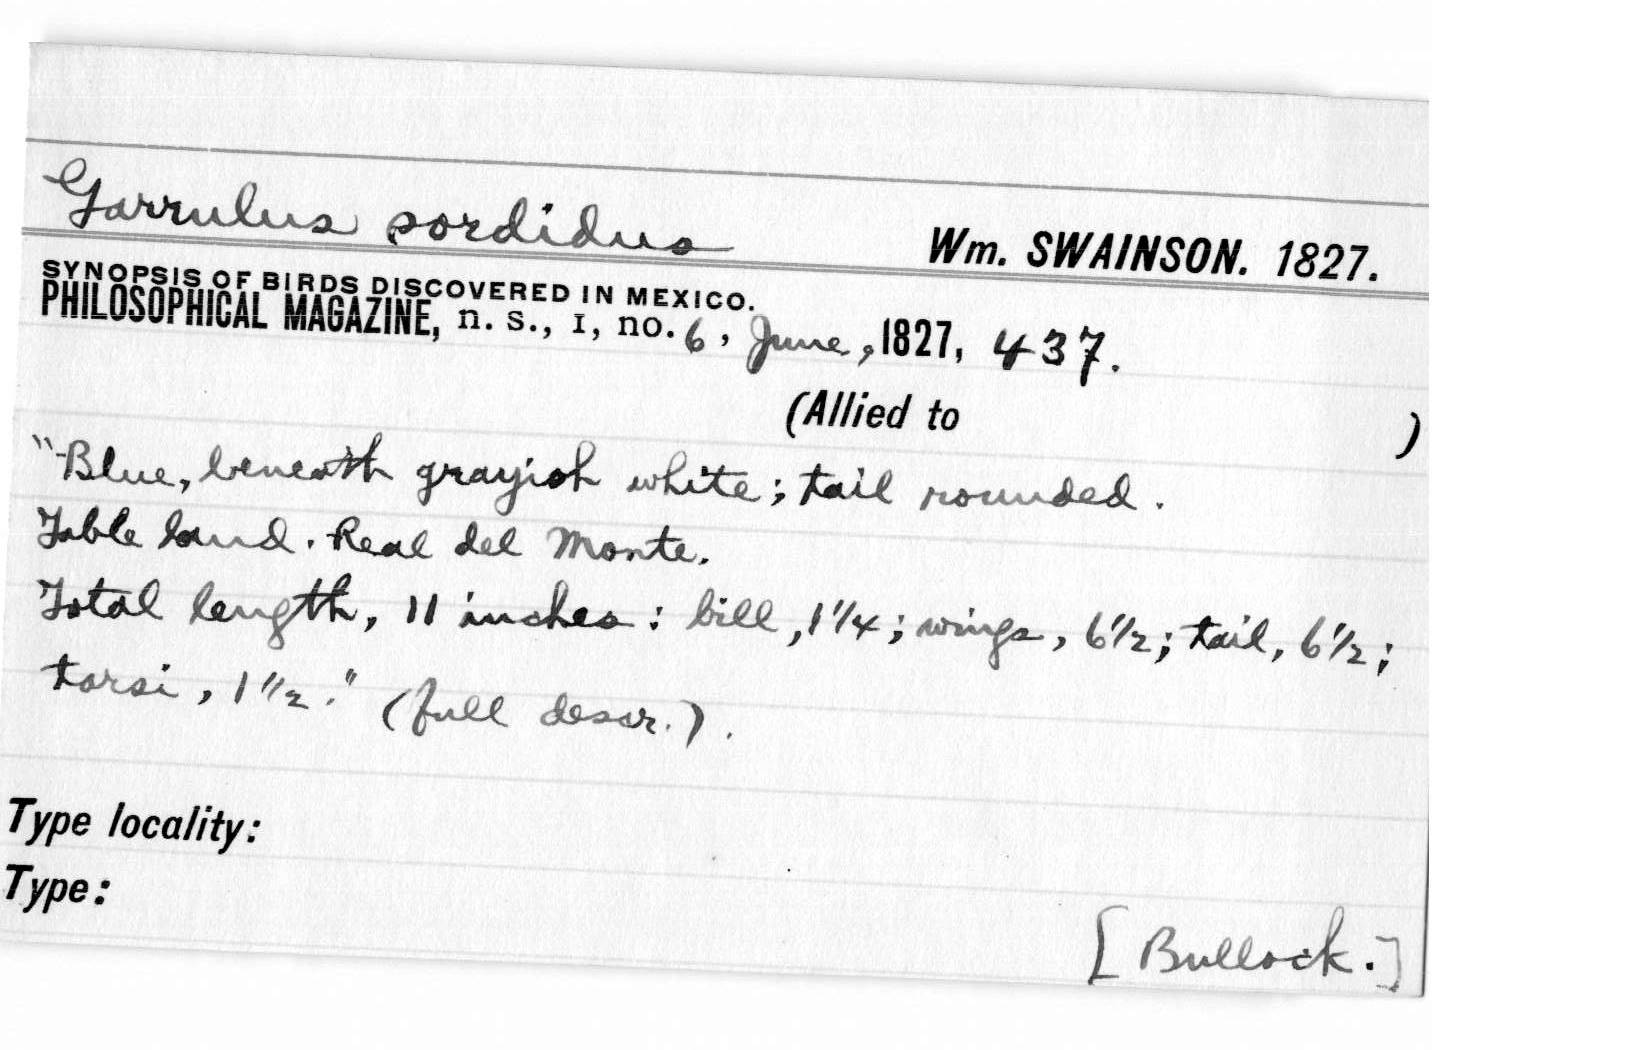 Garrulus sordidus Wm. SWAINSON. 1827.
SYNOPSIS OF BIRDS DISCOVERED IN MEXICO.
PHILOSOPHICAL MAGAZINE, n. s., I, no. 6, June, 1827, 437.
(Allied to )
"Blue, beneath grayish white; tail rounded.
Table land. Real del Monte.
Total length, 11 inches: bill, 1 1/4; wings, 6 1/2; tail, 6 1/2;
tarsi, 1 1/2." (full descr.).
Type locality:
Type:
[Bullock.]